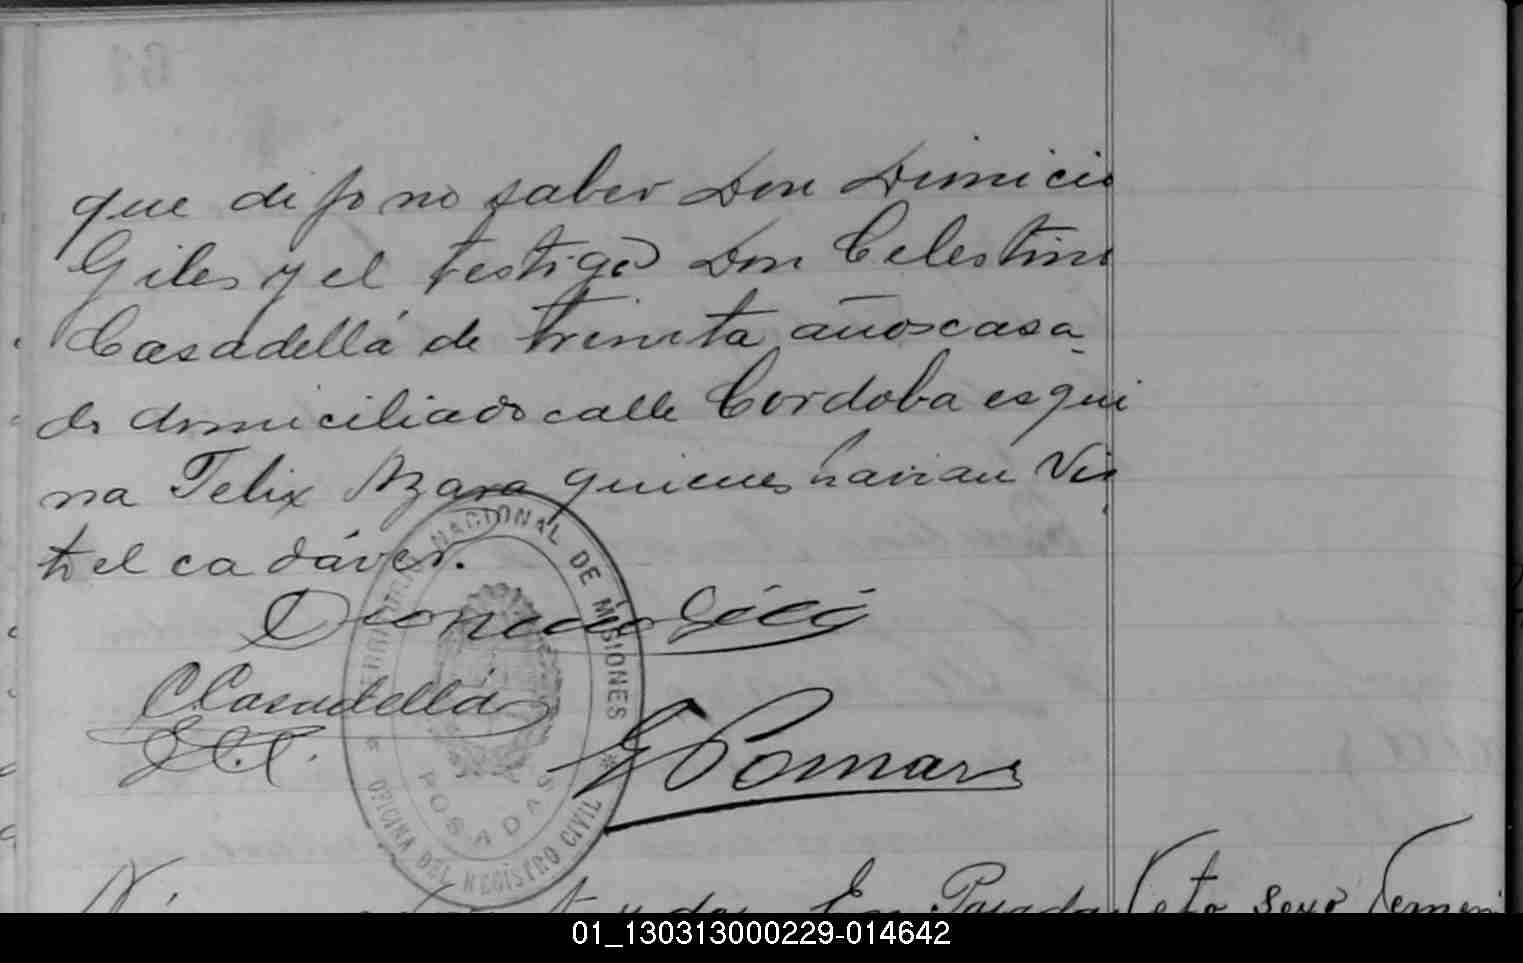 que dijo no saber Don Dionicio
Giles y el testigo Don Celestino
Casadellá de treinta años casa
do domiciliado calle Cordoba esqui
na Felix Azara quienes havian vis
to el cadáver.
C Casadellá
E Pomar
GOBERNACION NACIONAL DE MISIONES
POSADAS
OFICINA DEL REGISTRO CIVIL
y dos En Posadas
feto sexo femeni
01_130313000229-014642